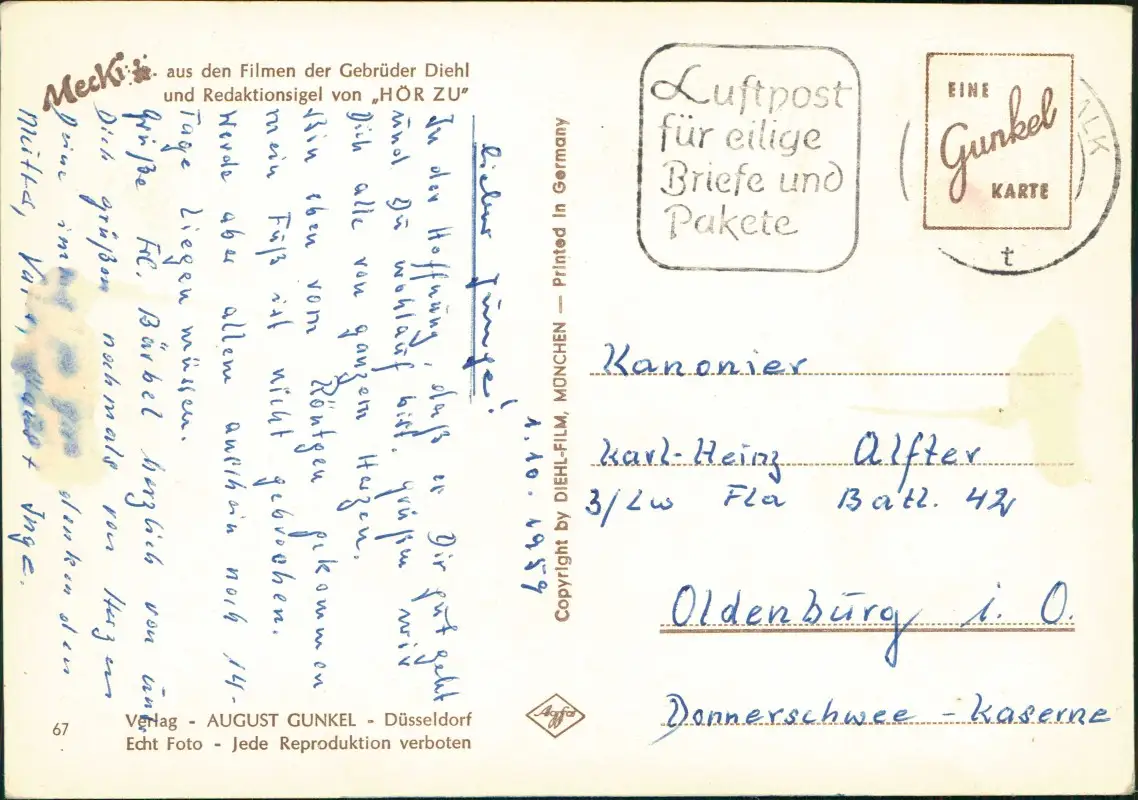 Mecki
aus den Filmen der Gebrüder Diehl
und Redaktionsigel von „HÖR ZU"
1.10.1959
lieber Junge!
In der Hoffnung, daß es Dir gut geht
und Du wohlauf bist. grüßen wir
Dich alle von ganzem Herzen.
Bin eben vom Röntgen gekommen
mein Fuß ist nicht gebrochen.
Werde aber allem anschein nach 14-
Tage Liegen müssen.
Grüße Frl. Bärbel herzlich von uns
Dich grüßen nochmals von Herzen
Deine immer denkenden
Mutter, Vater, + Inge.
67
Verlag - AUGUST GUNKEL - Düsseldorf
Echt Foto - Jede Reproduktion verboten
Copyright by DIEHL-FILM, MÜNCHEN — Printed in Germany
Agfa
Luftpost
für eilige
Briefe und
Pakete
EINE
Gunkel
KARTE
t
Kanonier
Karl-Heinz Alfter
3/Lw Fla Batl. 42
Oldenburg i. O.
Donnerschwee - Kaserne